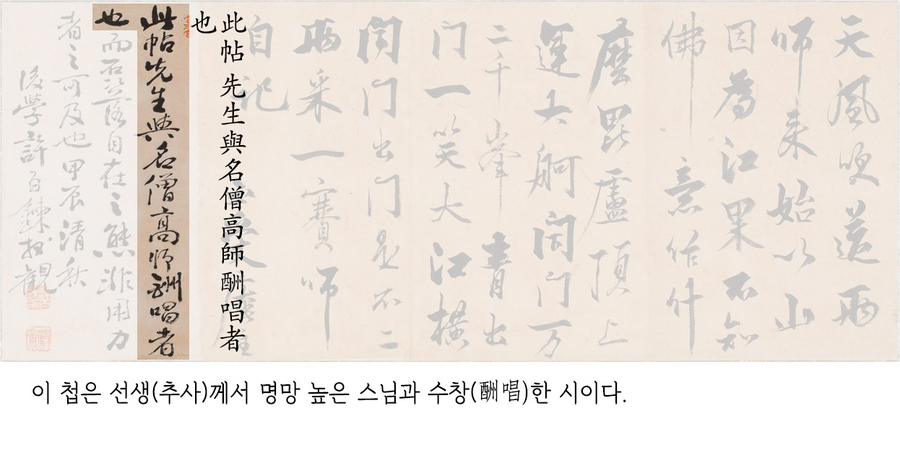 天風吹送雨
師来始以山
因為江果不知
佛意作什
麼毘盧頂上
運大舸開門万
二千峯青出
門一笑大江橫
門出門是不二
采一賽師
自記
此帖先生與名僧高師酬唱者
也
此帖先生與名僧高師酬唱者
也而磊落自在之態非用力
者之可及也甲辰清秋
後學許百鍊拜觀
이 첩은 선생(추사)께서 명망 높은 스님과 수창(酬唱)한 시이다.